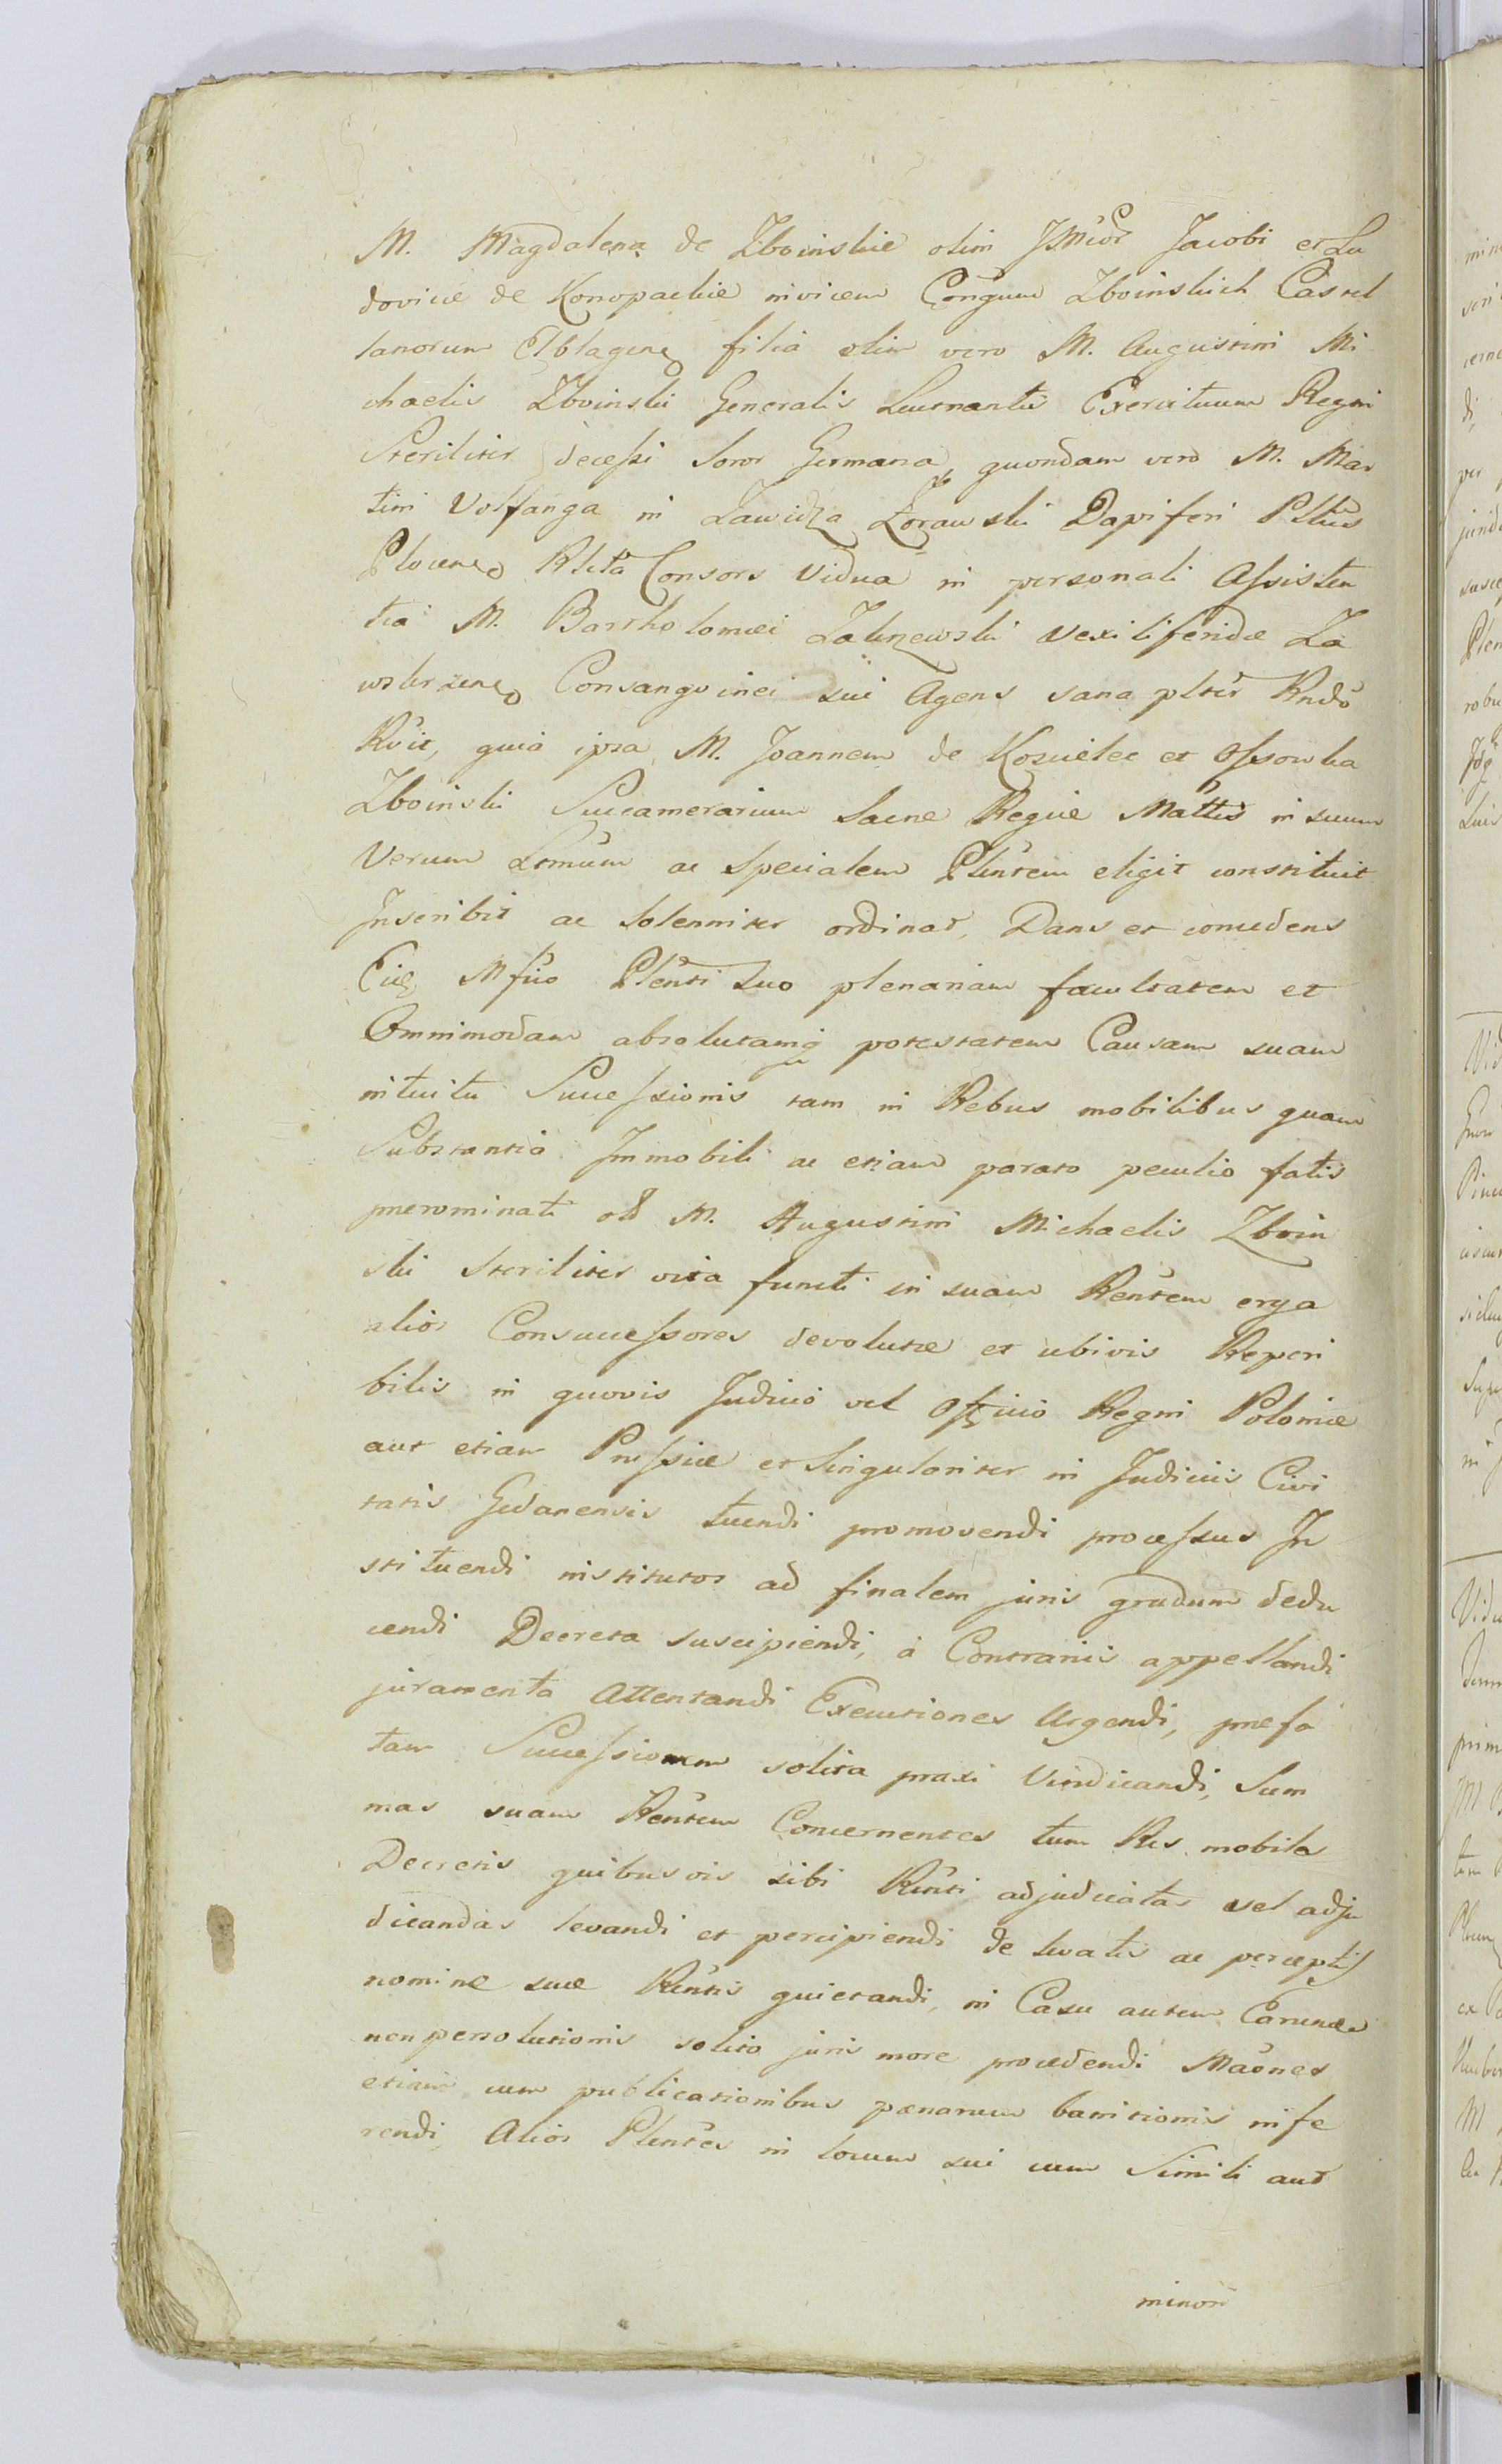 M. Magdalena de Zboinskie olim JMcor Jacobi et Lu
dovicæ de Konopackie invicem Congum Zboinskich Castel
lanorum Elblagens filia olim vero M. Augustini Mi
chaelis Zboinski Generalis Leutnantis Exercituum Regni
Steriliter decessi Soror Germana, quondam vero M. Mar
tini Volfanga in Zawidza Zorawski Dapiferi Pltus
Plocens Rlcta Consors Vidua in personali Assisten
tia M. Bartholomæi Zakrzewski Vexiliferidæ Za
wskrzens Consangvinei sui Agens sana plter Rndo
Rvit, quia ipsa M. Joannem de Kozielec et Ossowka
Zboinski Succamerarium Sacræ Regiæ Mattis in suum
Verum Ltmum ac specialem Plentem eligit constituit
Inscribit ac Solenniter ordinat, Dans et concedens
Eidq Mfico Plenti Suo plenariam facultatem et
Omnimodam absolutamq potestatem Causam suam
intuitu Successionis tam in Rebus mobilibus quam
Substantia Immobili ac etiam parato peculio fatis
prenominati ol M. Augustini Michaelis Zboin
ski steriliter vita functi in suam Rentem erga
alios Consuccessores devolutæ et ubivis Reperi
bilis in quovis Judicio vel Officio Regni Poloniæ
aut etiam Prussiæ et Singulariter in Judiciis Civi
tatis Gedanensis tuendi promovendi processus In
stituendi institutos ad finalem juris gradum dedu
cendi Decreta suscipiendi, a Contrariis appellandi
juramenta Attentandi Executiones Urgendi, prefa
tam Successionem solita praxi Vindicandi, Sum
mas suam Rentem Concernentes tum Res mobiles
Decretis quibusvis sibi Renti adjudicatas vel adju
dicandas levandi et percipiendi de levatis ac perceptis
nomine suæ Rentis quietandi, in Casu autem Earundem
non persolutionis solito juris more procedendi Maones
etiam cum publicationibus pœnarum bannitionis infe
rendi, Alios Plentes in locum sui cum Simili aut
minori